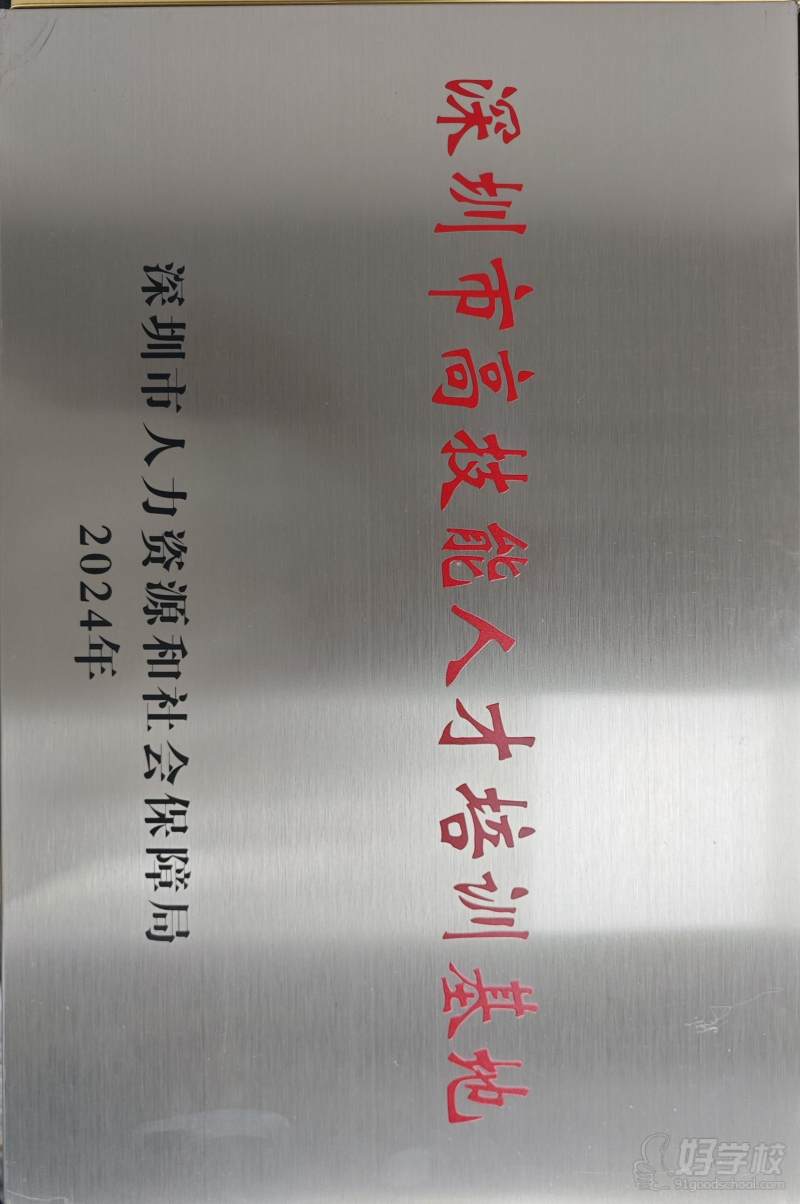 深圳市高技能人才培训基地
深圳市人力资源和社会保障局
2024年
好学校
91goodschool.com